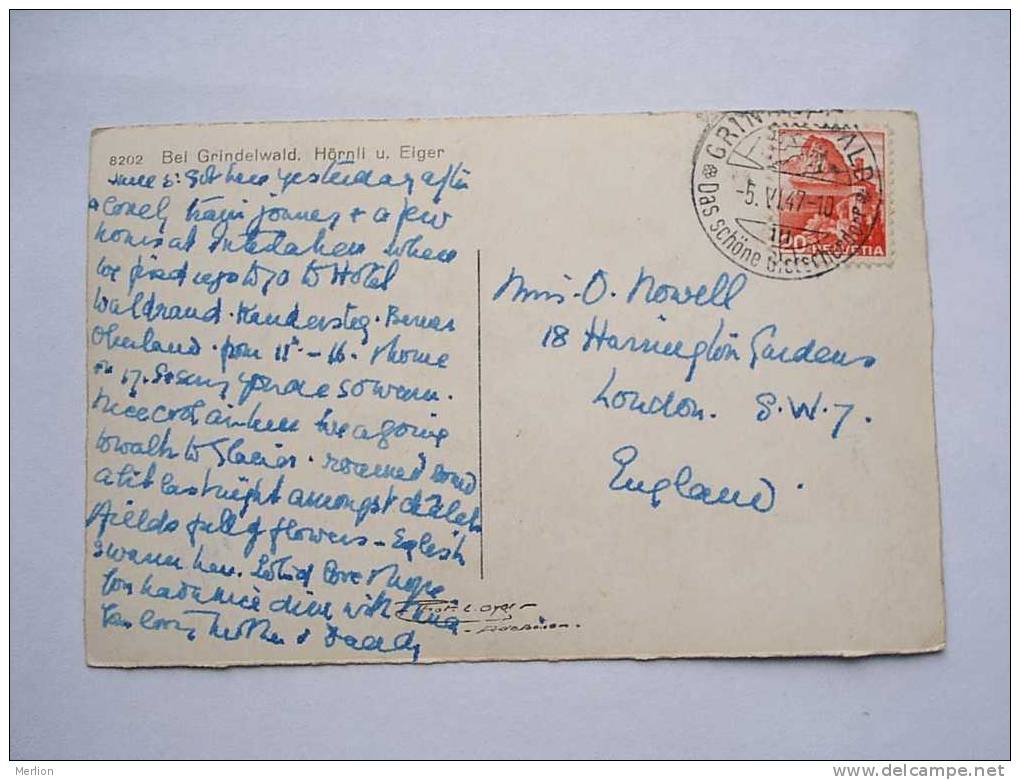 8202 Bei Grindelwald. Hörnli u. Eiger
Got here yesterday after
a lovely train journey & a few
hours at Interlaken where
we fixed up to go to Hotel
Waldrand. Kandersteg. Berner
Oberland. from 11th - 16. & home
on 17. So sorry you are so warm.
Nice cool air here. We are going
to walk to Glacier. roamed round
a bit last night amongst chalets
& fields full of flowers - English
swarm here. Lots of love & hope
you had a nice dine with
Yr. loving Mother & Daddy
Miss. O. Nowell
18 Harrington Gardens
London. S.W.7.
England.
GRINDELWALD
-5. VI. 47-10
Das schöne Gletscherdorf
HELVETIA
Merlion
delcampe.net